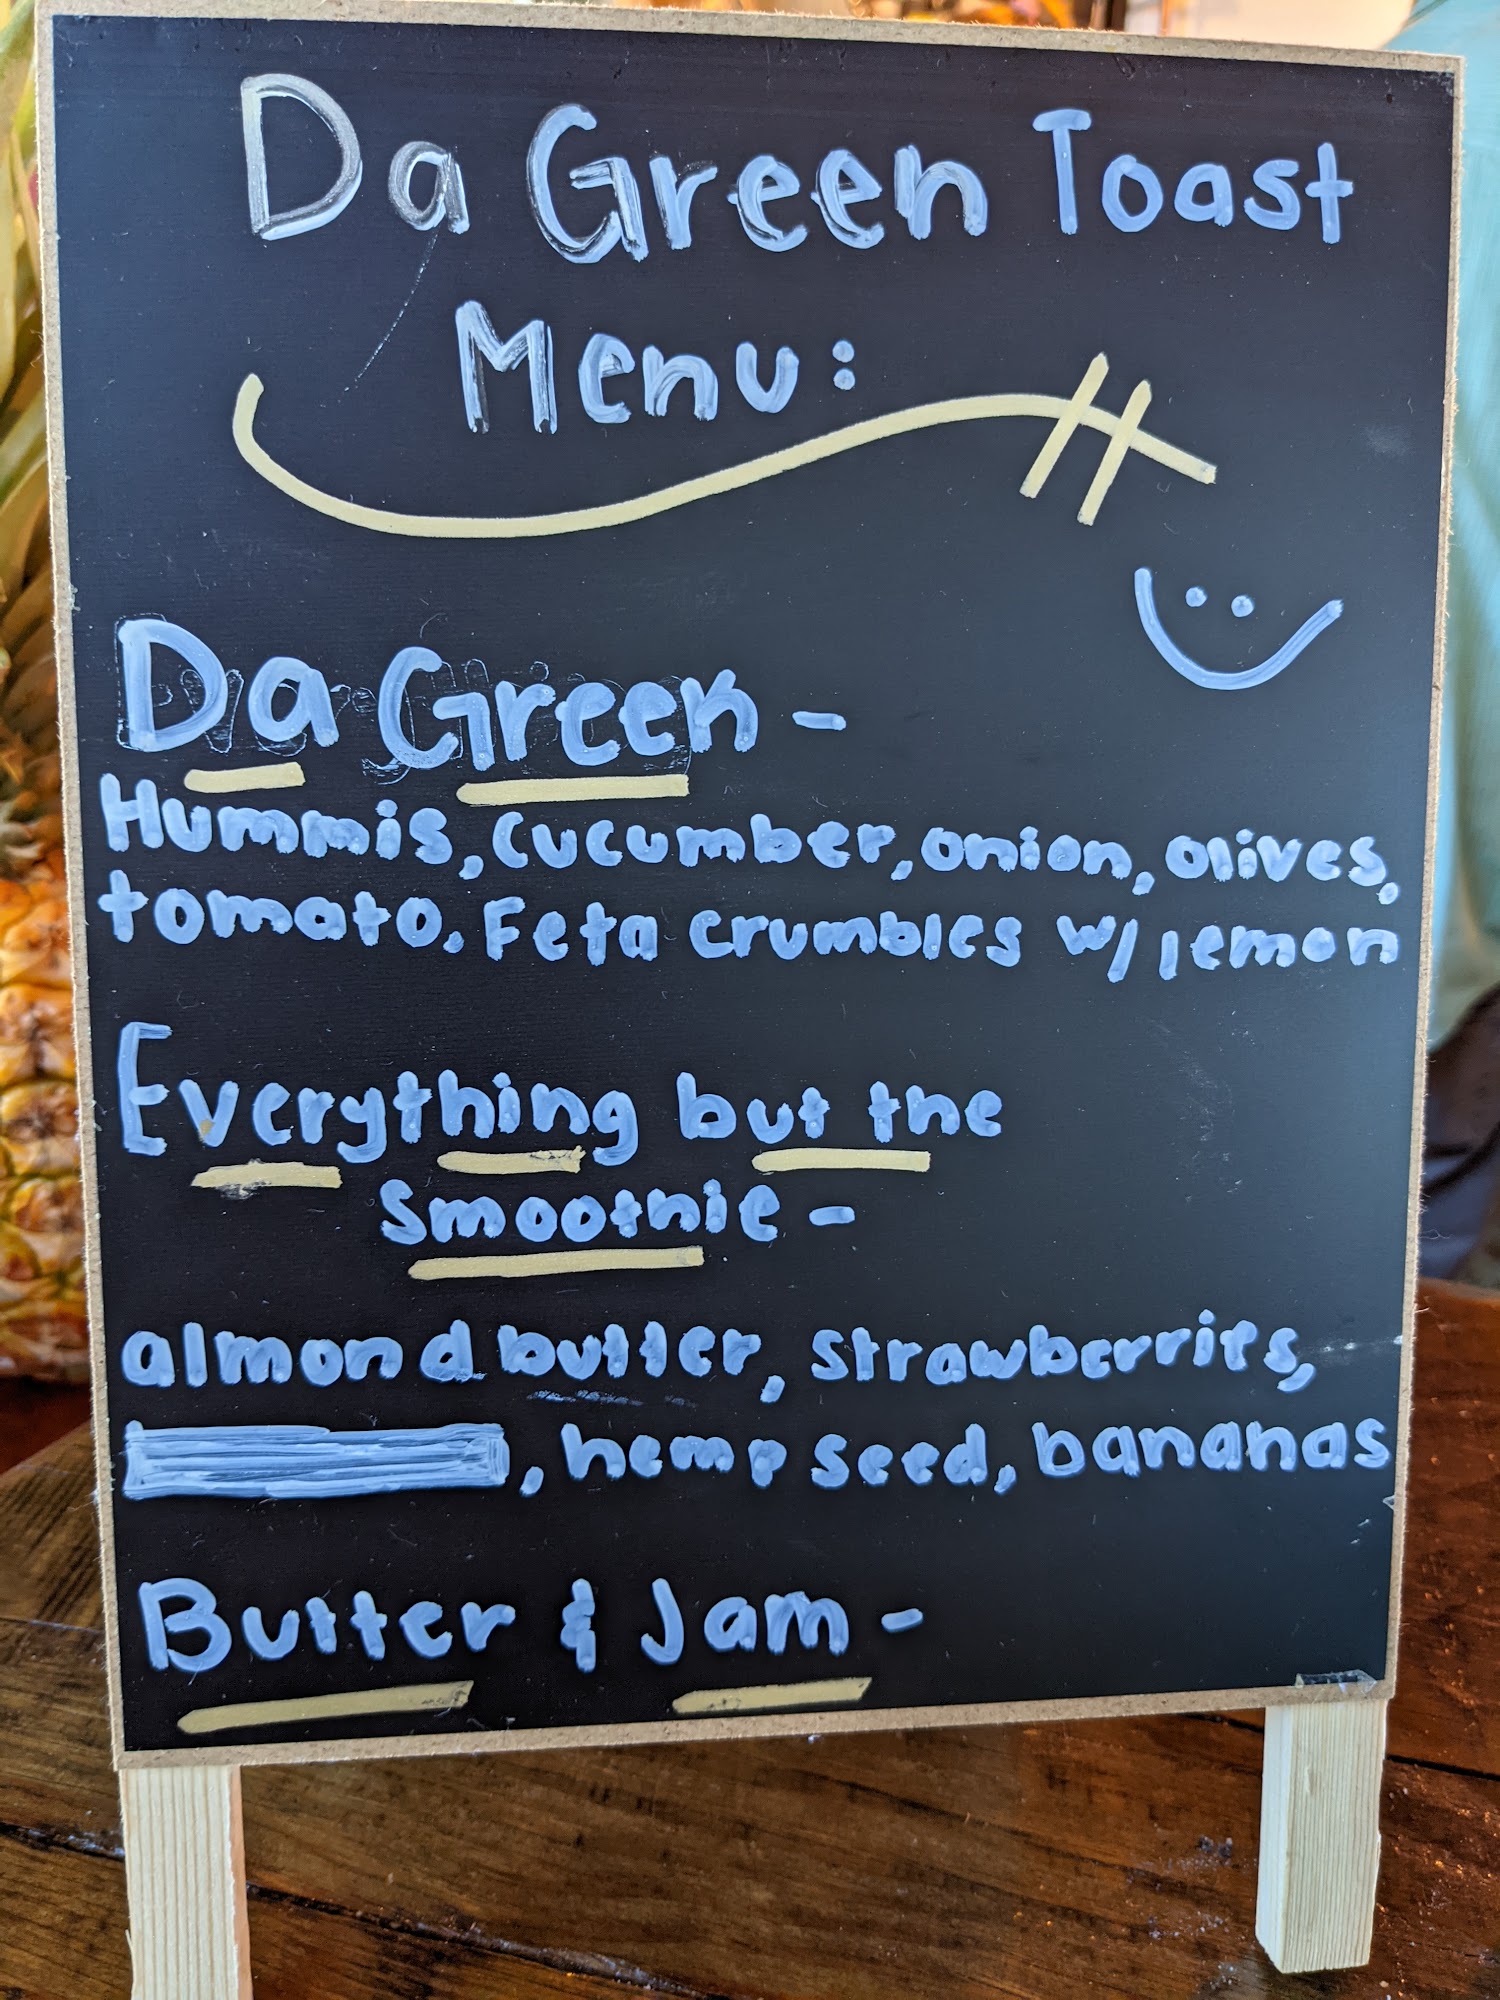 Da Green Toast
Menu:
Da Green -
Hummis, cucumber, onion, olives,
tomato. Feta crumbles w/ lemon
Everything but the
Smoothie -
almond butter, strawberries,
, hemp seed, bananas
Butter & Jam -